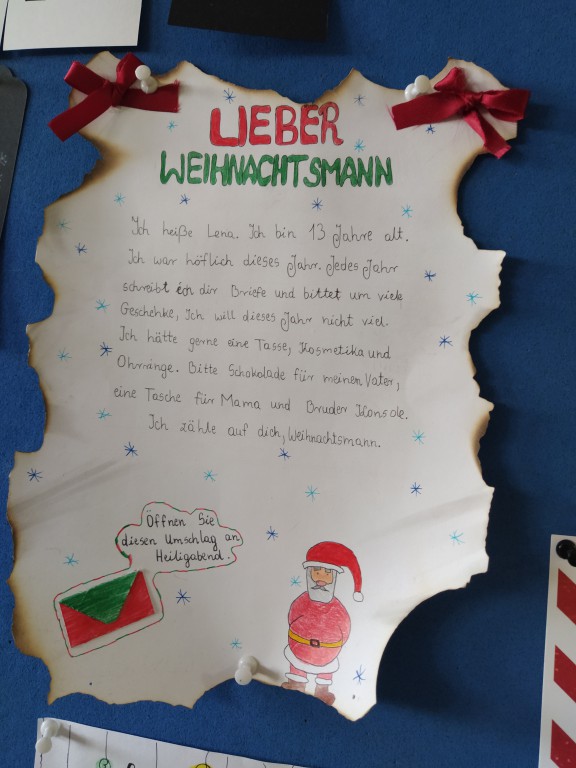 LIEBER
WEIHNACHTSMANN
Ich heiße Lena. Ich bin 13 Jahre alt.
Ich war höflich dieses Jahr. Jedes Jahr
schreibt ich dir Briefe und bittet um viele
Geschehke, Ich will dieses Jahr nicht viel.
Ich hätte gerne eine Tasse, Kosmetika und
Ohrränge. Bitte Schokolade für meinen Vater,
eine Tasche für Mama und Bruder Konsole.
Ich zähle auf dich, Weihnachtsmann.
Öffnen Sie
diesen Umschlag an
Heiligabend.